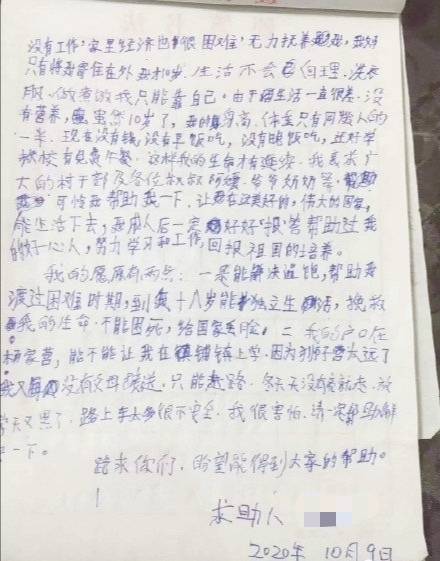 没有工作，家里经济也很困难，无力抚养我，我好
只有将我寄住在外，我才10岁，生活不会自理，洗衣
服，做饭做我只能靠自己。由于生活一直很差，没
有营养，虽然10岁了，我的身高，体重只有同龄人的
一半，现在没有钱，没有早饭吃，没有晚饭吃，还好学
校有免费午餐，这样我的生命才有延续，我恳求广
大的村干部及各位叔叔阿姨，爷爷奶奶等
可怜我帮助我一下，让我在这美好的，伟大的国家，
能生活下去，我成人后一定好好报答帮助过我
的好心人，努力学习和工作，回报祖国的培养。
我的愿原有两点：一是能解决温饱，帮助我
渡过困难时期，到我十八岁能独立生活，挽救
我的生命，不能困死，给国家丢脸，二 我的户口在
家营，能不能让我在镇上学，因为太远了
我又没有父母接送，只能走路，冬天天没有亮就走，放
学天又黑了，路上车太多很不安全，我很害怕，请一定帮助解
一下。
跪求你们，盼望能得到大家的帮助。
求助人
2020年 10月9日